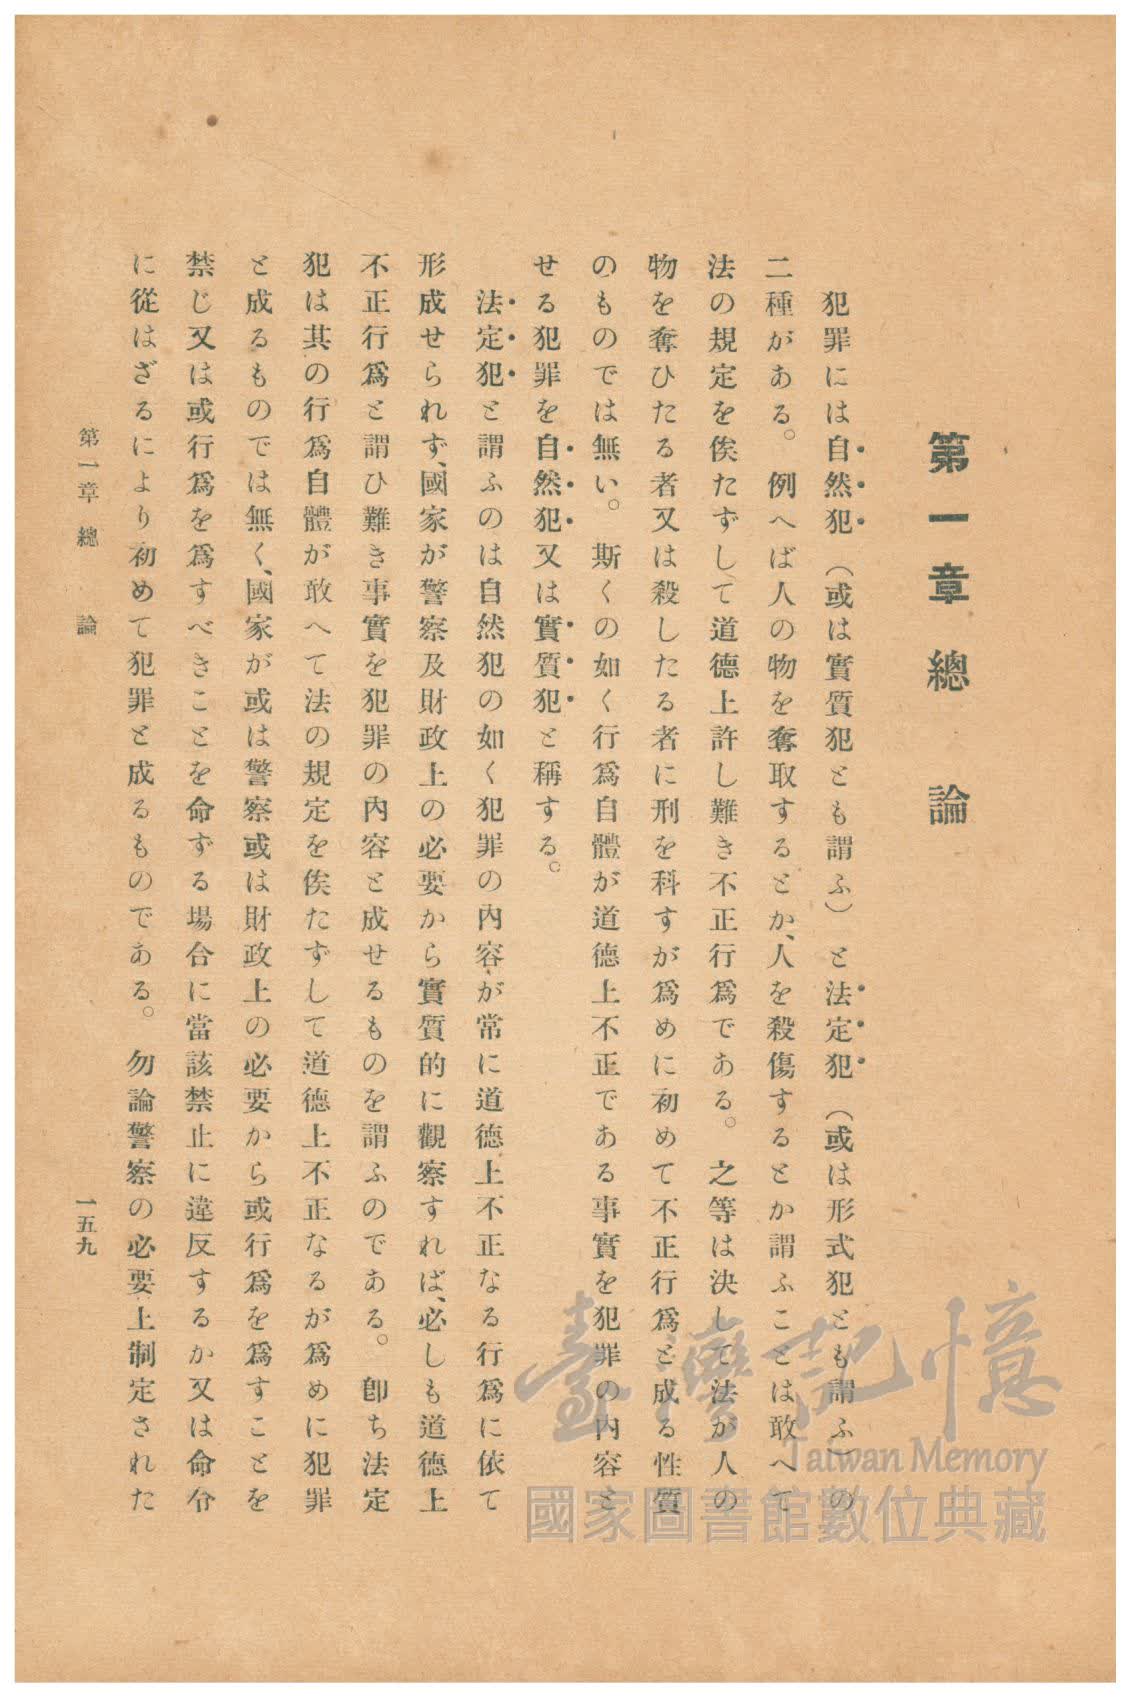 第一章 總 論
犯罪には自然犯（或は實質犯とも謂ふ）と法定犯（或は形式犯とも謂ふ）の
二種がある。例へば人の物を奪取するとか、人を殺傷するとか謂ふことは敢へて
法の規定を俟たずして道德上許し難き不正行爲である。之等は決して法が人の
物を奪ひたる者又は殺したる者に刑を科すが爲めに初めて不正行爲と成る性質
のものでは無い。斯くの如く行爲自體が道德上不正である事實を犯罪の內容と
せる犯罪を自然犯又は實質犯と稱する。
法定犯と謂ふのは自然犯の如く犯罪の內容が常に道德上不正なる行爲に依て
形成せられず、國家が警察及財政上の必要から實質的に觀察すれば、必しも道德上
不正行爲と謂ひ難き事實を犯罪の內容と成せるものを謂ふのである。卽ち法定
犯は其の行爲自體が敢へて法の規定を俟たずして道德上不正なるが爲めに犯罪
と成るものでは無く、國家が或は警察或は財政上の必要から或行爲を爲すことを
禁じ又は或行爲を爲すべきことを命ずる場合に當該禁止に違反するか又は命令
に從はざるにより初めて犯罪と成るものである。勿論警察の必要上制定された
第一章 總 論
一五九
臺灣記憶
Taiwan Memory
國家圖書館數位典藏